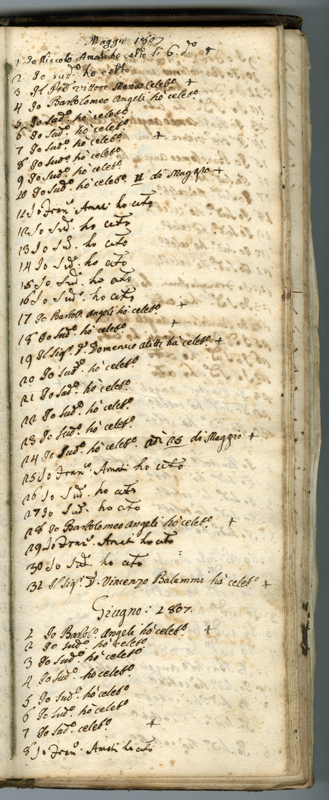 Maggio 1807
1 Io Niccolo Amati ho cto di 6. do +
2 Io sudo. ho cto
3 Il Vittore Mario celebo. +
4 Io Bartolomeo Angeli hò celebo.
5 Io Sudo. hò celebo.
6 Io Sudo. hò celebo.
7 Io Sudo. hò celebo. +
8 Io Sudo. hò celebo.
9 Io Sudo. hò celebo.
10 Io Sudo. hò celebo. 11 di Maggio +
11 Io Frano. Amati ho cto
12 Io Sudo. ho cto
13 Io Sudo. ho cto
14 Io Sudo. ho cto
15 Io Sudo. ho cto
16 Io Sudo. ho cto
17 Io Bartolo. Angeli hò celebo. +
18 Io Sudo. hò celebo. +
19 Il Sigr. D. Domenico hà celebo. +
20 Io Sudo. hò celebo.
21 Io Sudo. hò celebo.
22 Io Sudo. hò celebo.
23 Io Sudo. hò celebo.
24 Io Sudo. hò celebo. 25 di Maggio +
25 Io Frano. Amati ho cto
26 Io Sudo. ho cto
27 Io Sudo. ho cto
28 Io Bartolomeo Angeli hò celebo. +
29 Io Frano. Amati ho cto
30 Io Sudo. ho cto
31 Il Sigr. D. Vincenzo hà celebo. +
Giugno: 1807.
1 Io Bartolo. Angeli hò celebo. +
2 Io Sudo. hò celebo.
3 Io Sudo. hò celebo.
4 Io Sudo. hò celebo.
5 Io Sudo. hò celebo.
6 Io Sudo. hò celebo.
7 Io Sudo. celebo. +
8 Io Frano. Amati ho cto